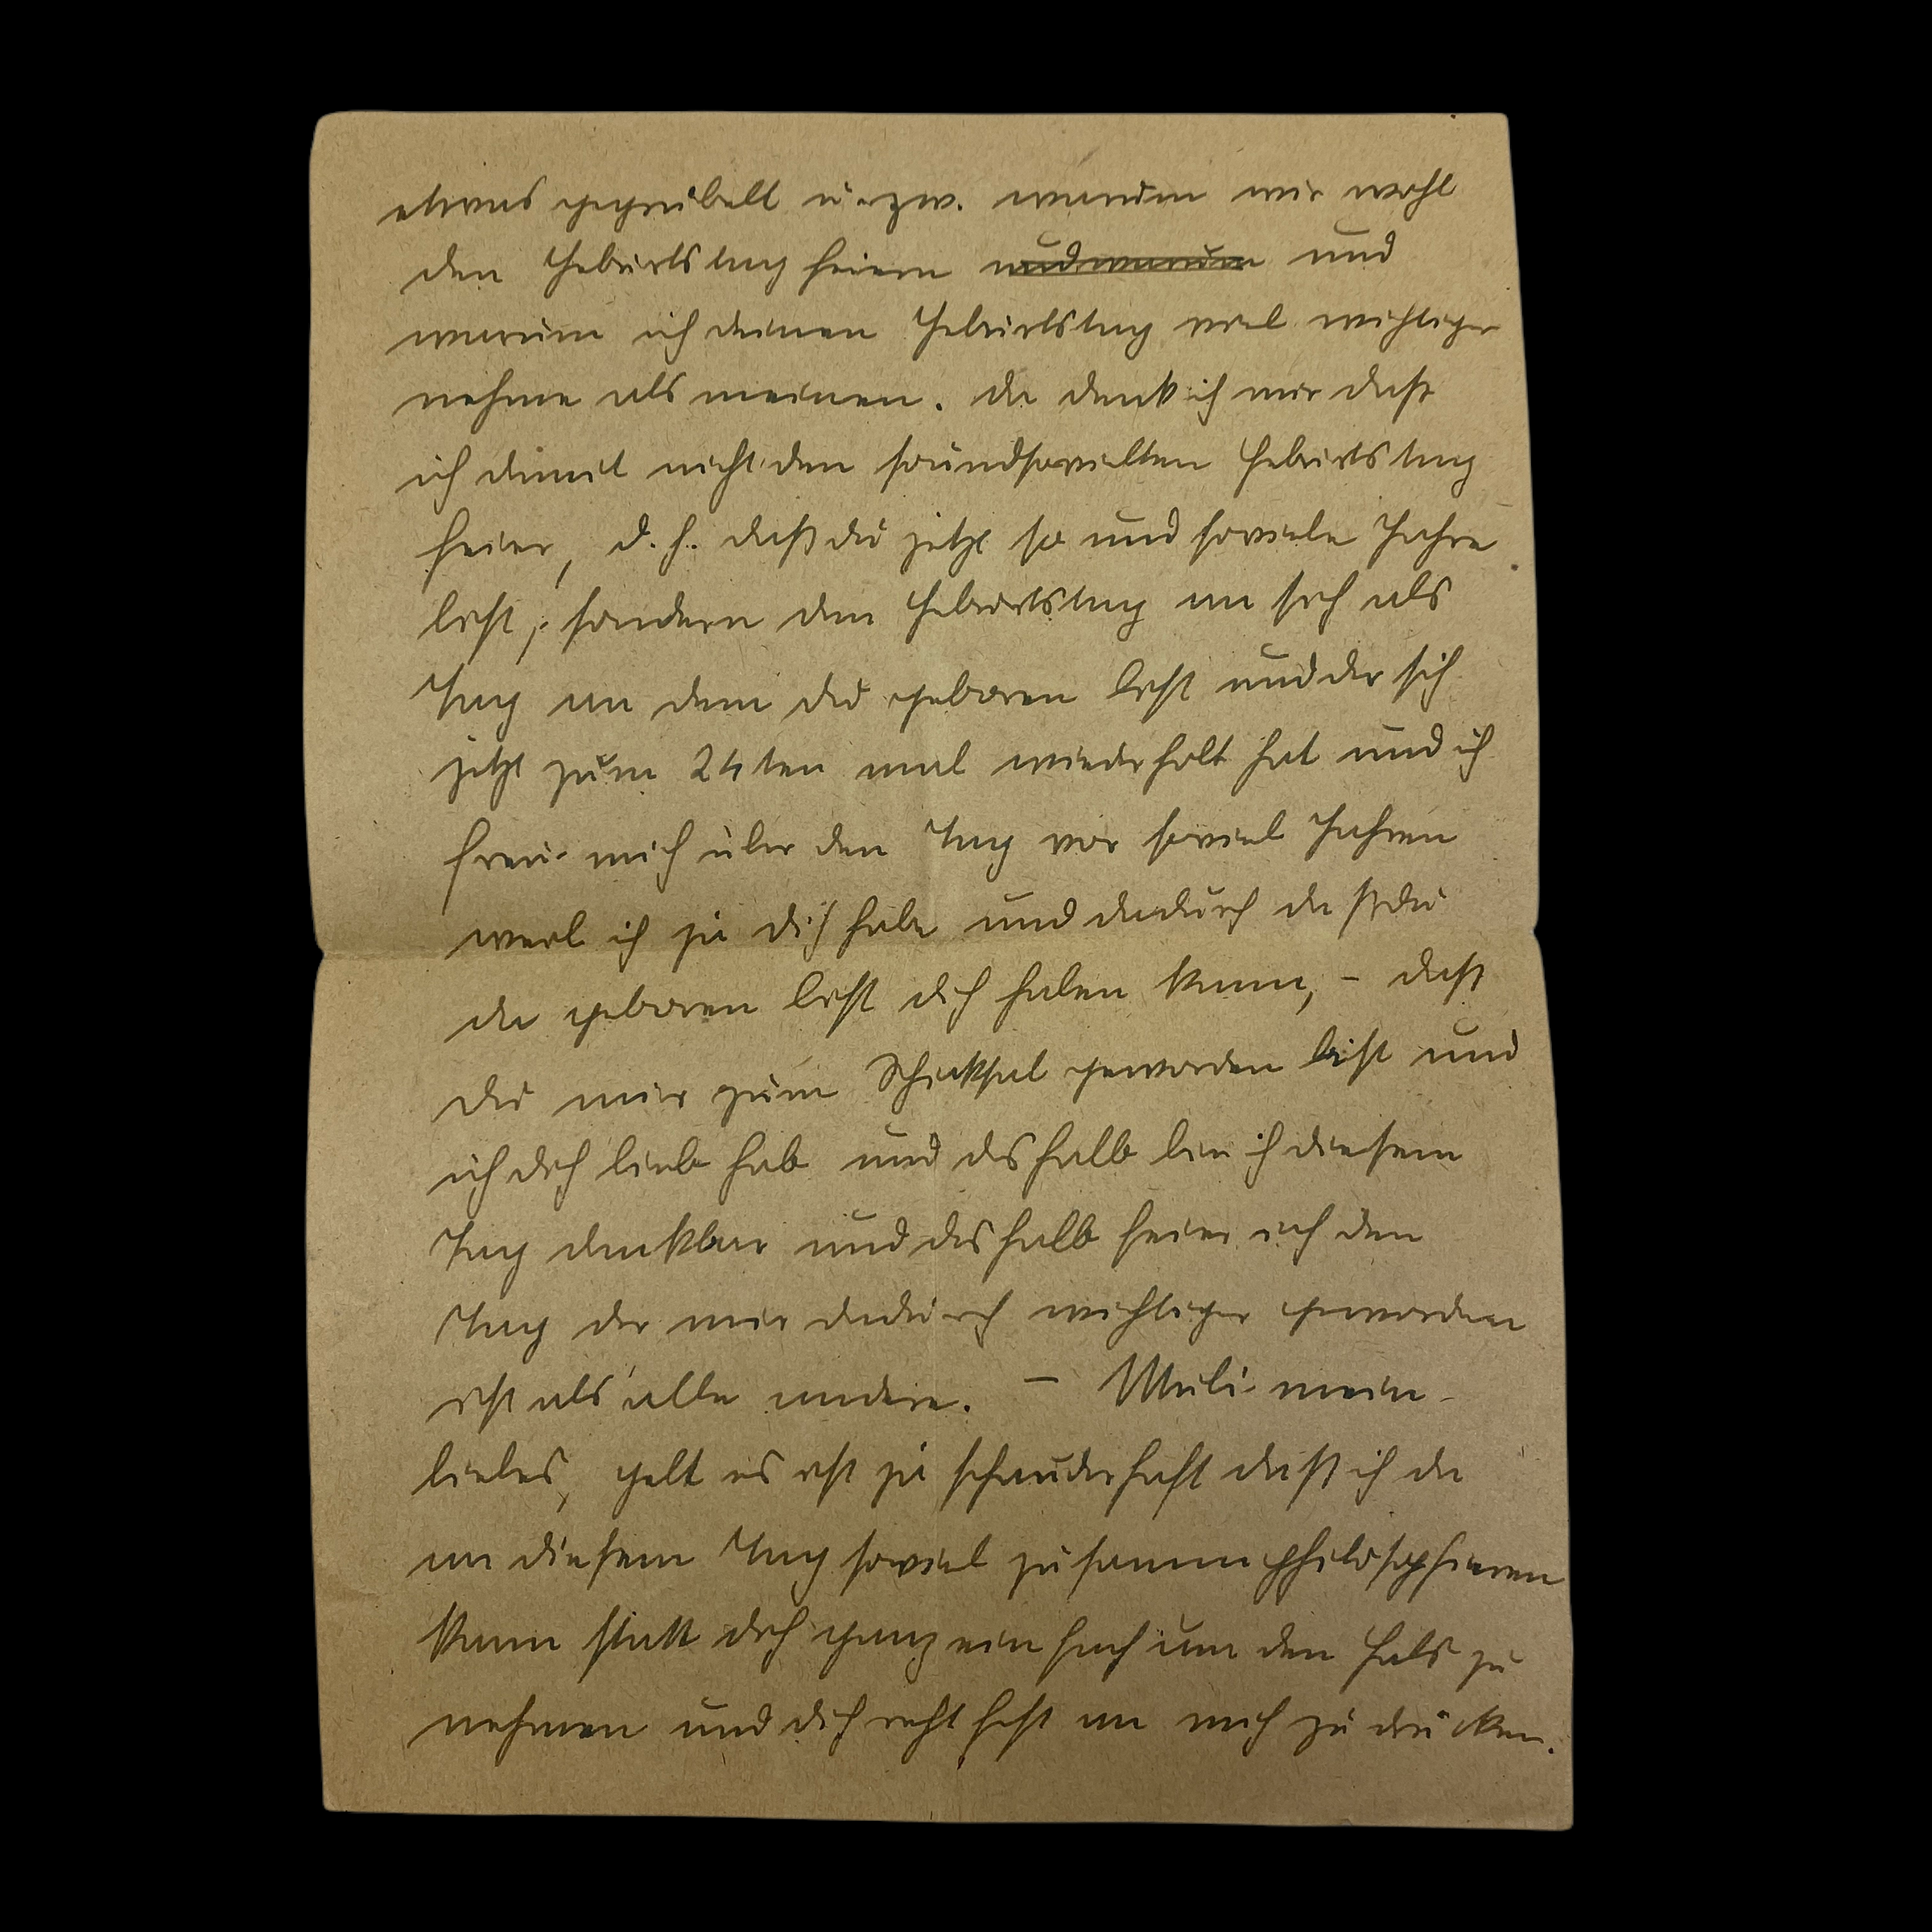 etwas gegrübelt u. zw. warum wir wohl
den Geburtstag feiern und warum und
warum ich deinen Geburtstag viel wichtiger
nehme als meinen. Da denk ich mir daß
ich damit nicht den soundsovielten Geburtstag
feier, d. h. daß du jetzt so und soviele Jahre
bist, sondern den Geburtstag an sich als
Tag an dem du geboren bist und der sich
jetzt zum 24ten mal wiederholt hat und ich
freu mich über den Tag vor soviel Jahren
weil ich ja dich habe und dadurch daß du
da geboren bist dich haben kann, – daß
du mir zum Schicksal geworden bist und
ich dich lieb hab und deshalb bin ich diesem
Tag dankbar und deshalb feier ich den
Tag der mir dadurch wichtiger geworden
ist als alle andern. – Muli mein
liebes, gelt es ist ja schauderhaft daß ich da
an diesem Tag soviel zusamm philosophieren
kann statt dich ganz einfach um den Hals zu
nehmen und dich recht fest an mich zu drücken.